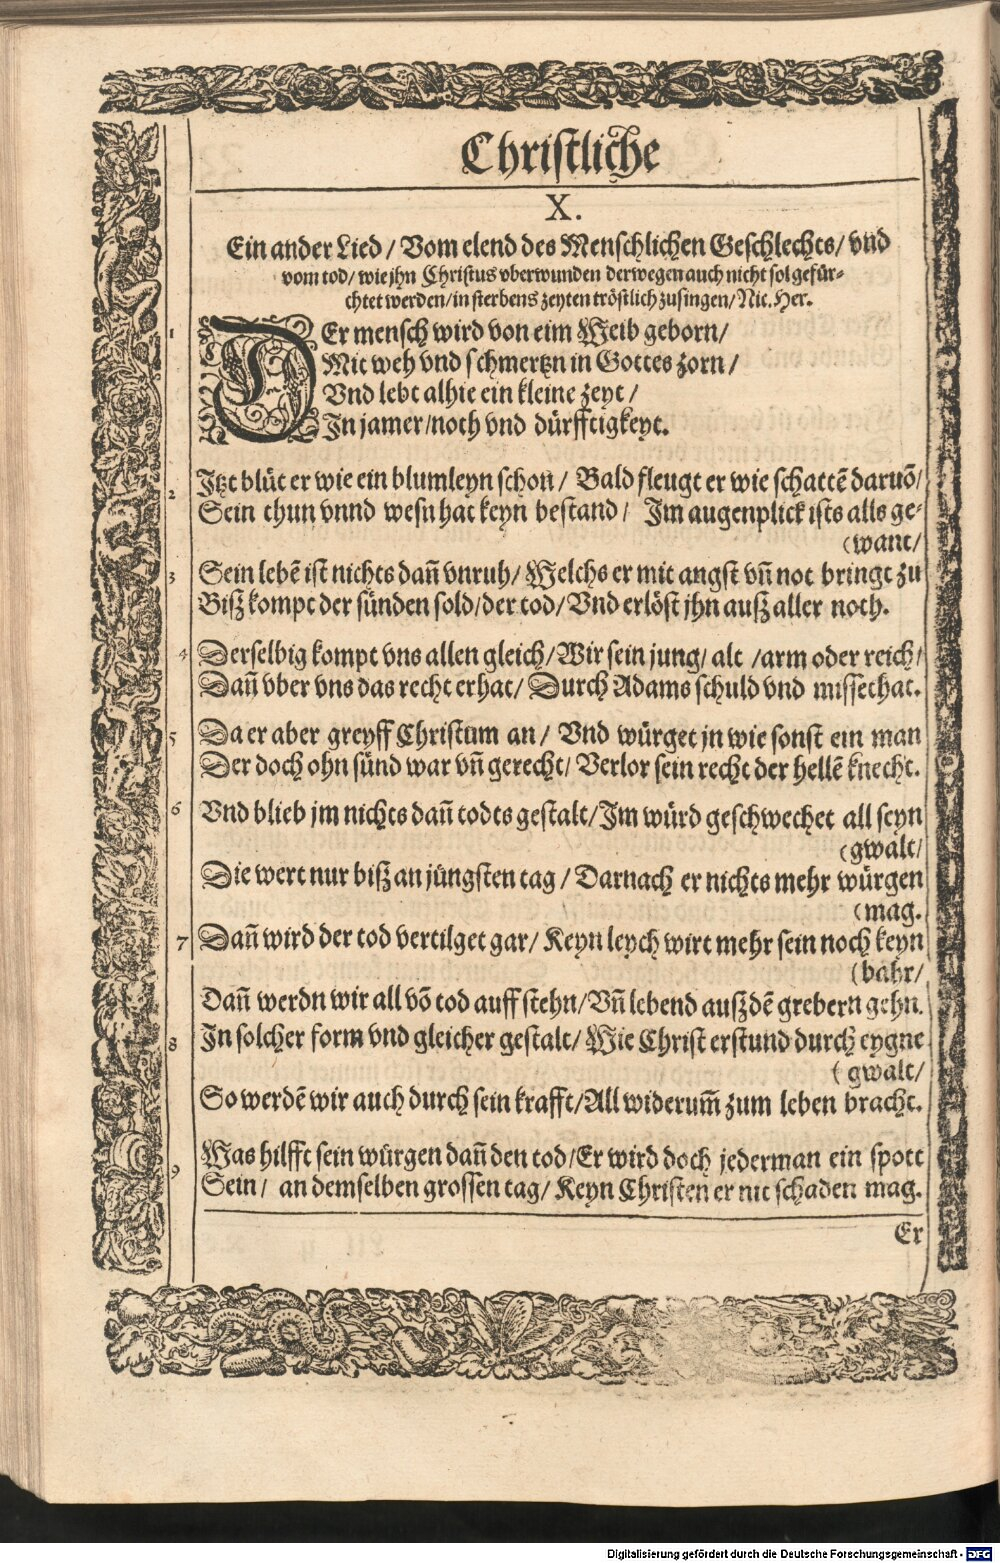 Christliche
X.
Ein ander Lied / Vom elend des Menschlichen Geschlechts / vnd
vom tod / wie jhn Christus vberwunden derwegen auch nicht sol gefür-
chtet werden / in sterbens zeyten tröstlich zusingen / Nic. Her.
1 DEr mensch wird von eim Weib geborn /
Mit weh vnd schmertzn in Gottes zorn /
Vnd lebt alhie ein kleine zeyt /
In jamer / noth vnd dürfftigkeyt.
2 Itzt blüt er wie ein blumleyn schon / Bald fleugt er wie schattē daruō /
Sein thun vnnd wesn hat keyn bestand / Im augenplick ists alls ge-
(want /
3 Sein lebē ist nichts dañ vnruh / Welchs er mit angst vñ not bringt zu
Biß kompt der sünden sold / der tod / Vnd erlöst jhn auß aller noth.
4 Derselbig kompt vns allen gleich / Wir sein jung / alt / arm oder reich /
Dañ vber vns das recht er hat / Durch Adams schuld vnd missethat.
5 Da er aber greyff Christum an / Vnd würget jn wie sonst ein man
Der doch ohn sünd war vñ gerecht / Verlor sein recht der hellē knecht.
6 Vnd blieb jm nichts dañ todts gestalt / Im würd geschwechet all seyn
(gwalt /
Die wert nur biß an jüngsten tag / Darnach er nichts mehr würgen
(mag.
7 Dañ wird der tod vertilget gar / Keyn leych wirt mehr sein noch keyn
(bahr /
Dañ werdn wir all vō tod auff stehn / Vñ lebend auß dē grebern gehn.
8 In solcher form vnd gleicher gestalt / Wie Christ erstund durch eygne
(gwalt /
So werdē wir auch durch sein krafft / All widerum̄ zum leben bracht.
9 Was hilfft sein würgen dañ den tod / Er wird doch jederman ein spott
Sein / an demselben grossen tag / Keyn Christen er nit schaden mag.
Er
Digitalisierung gefördert durch die Deutsche Forschungsgemeinschaft - DFG